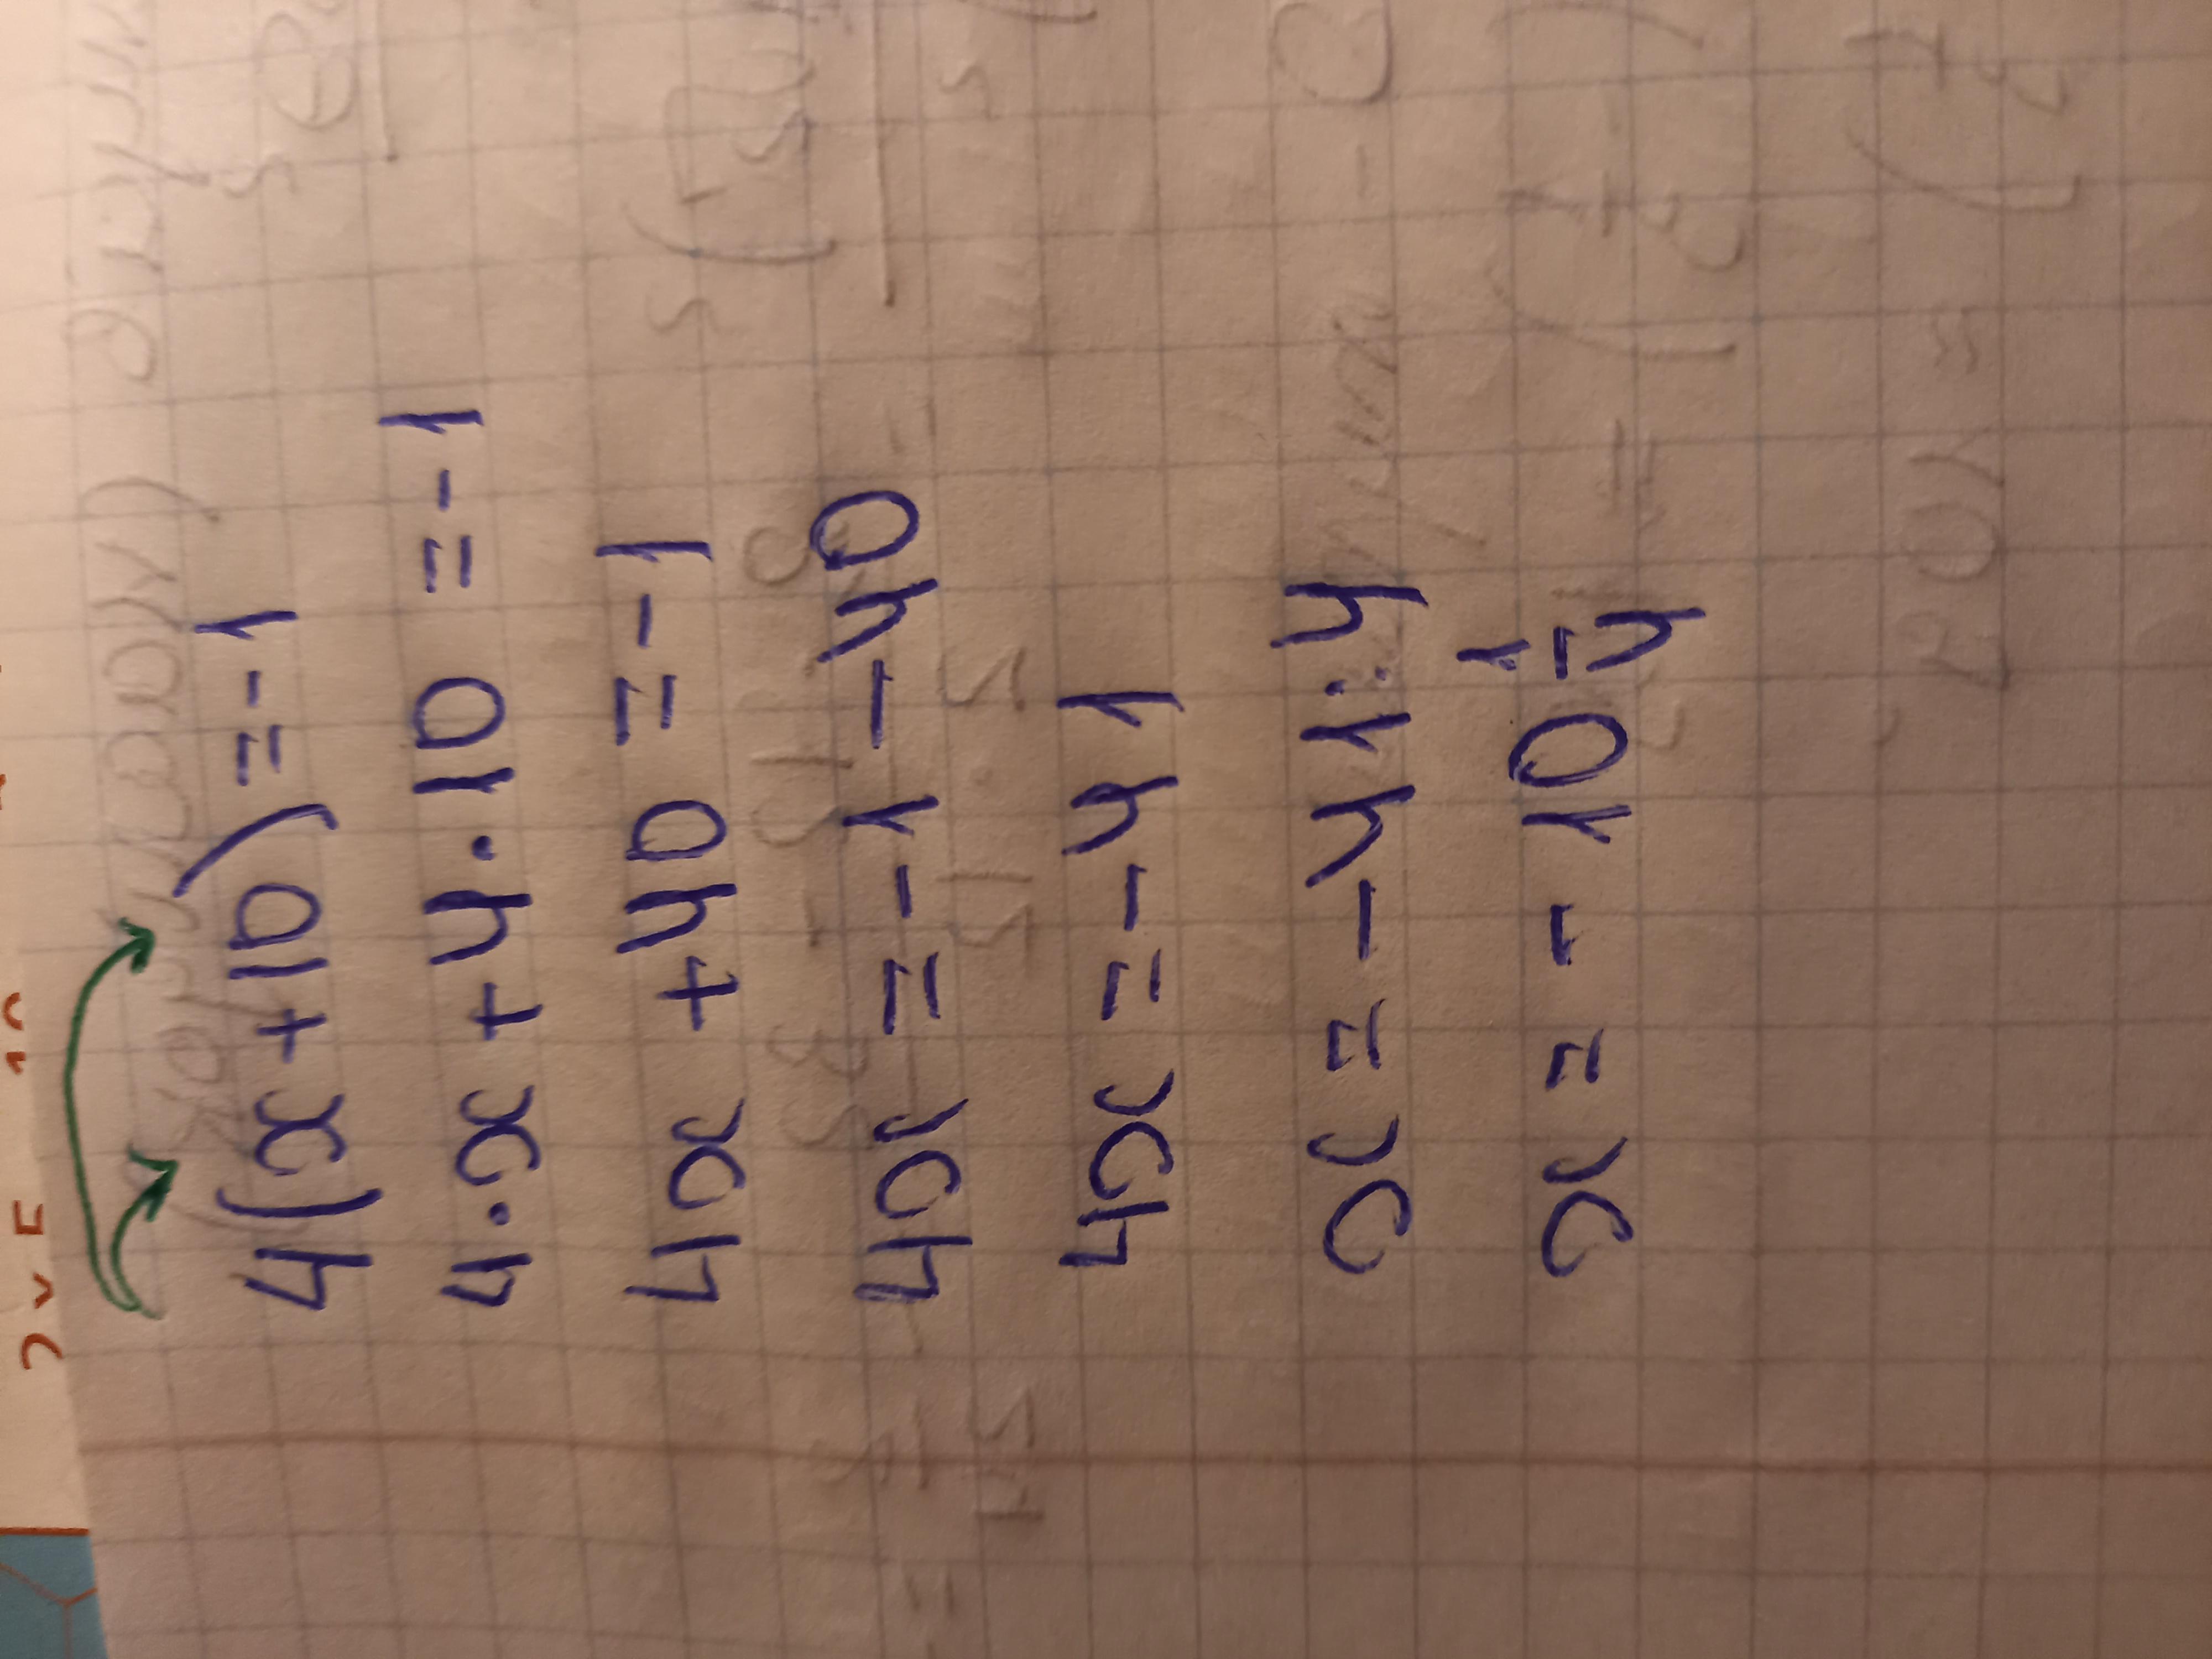 4(x+10)=-1
4·x+4·10=-1
4x+40=-1
4x=-1-40
4x=-41
x=-41:4
x=-10 1/4